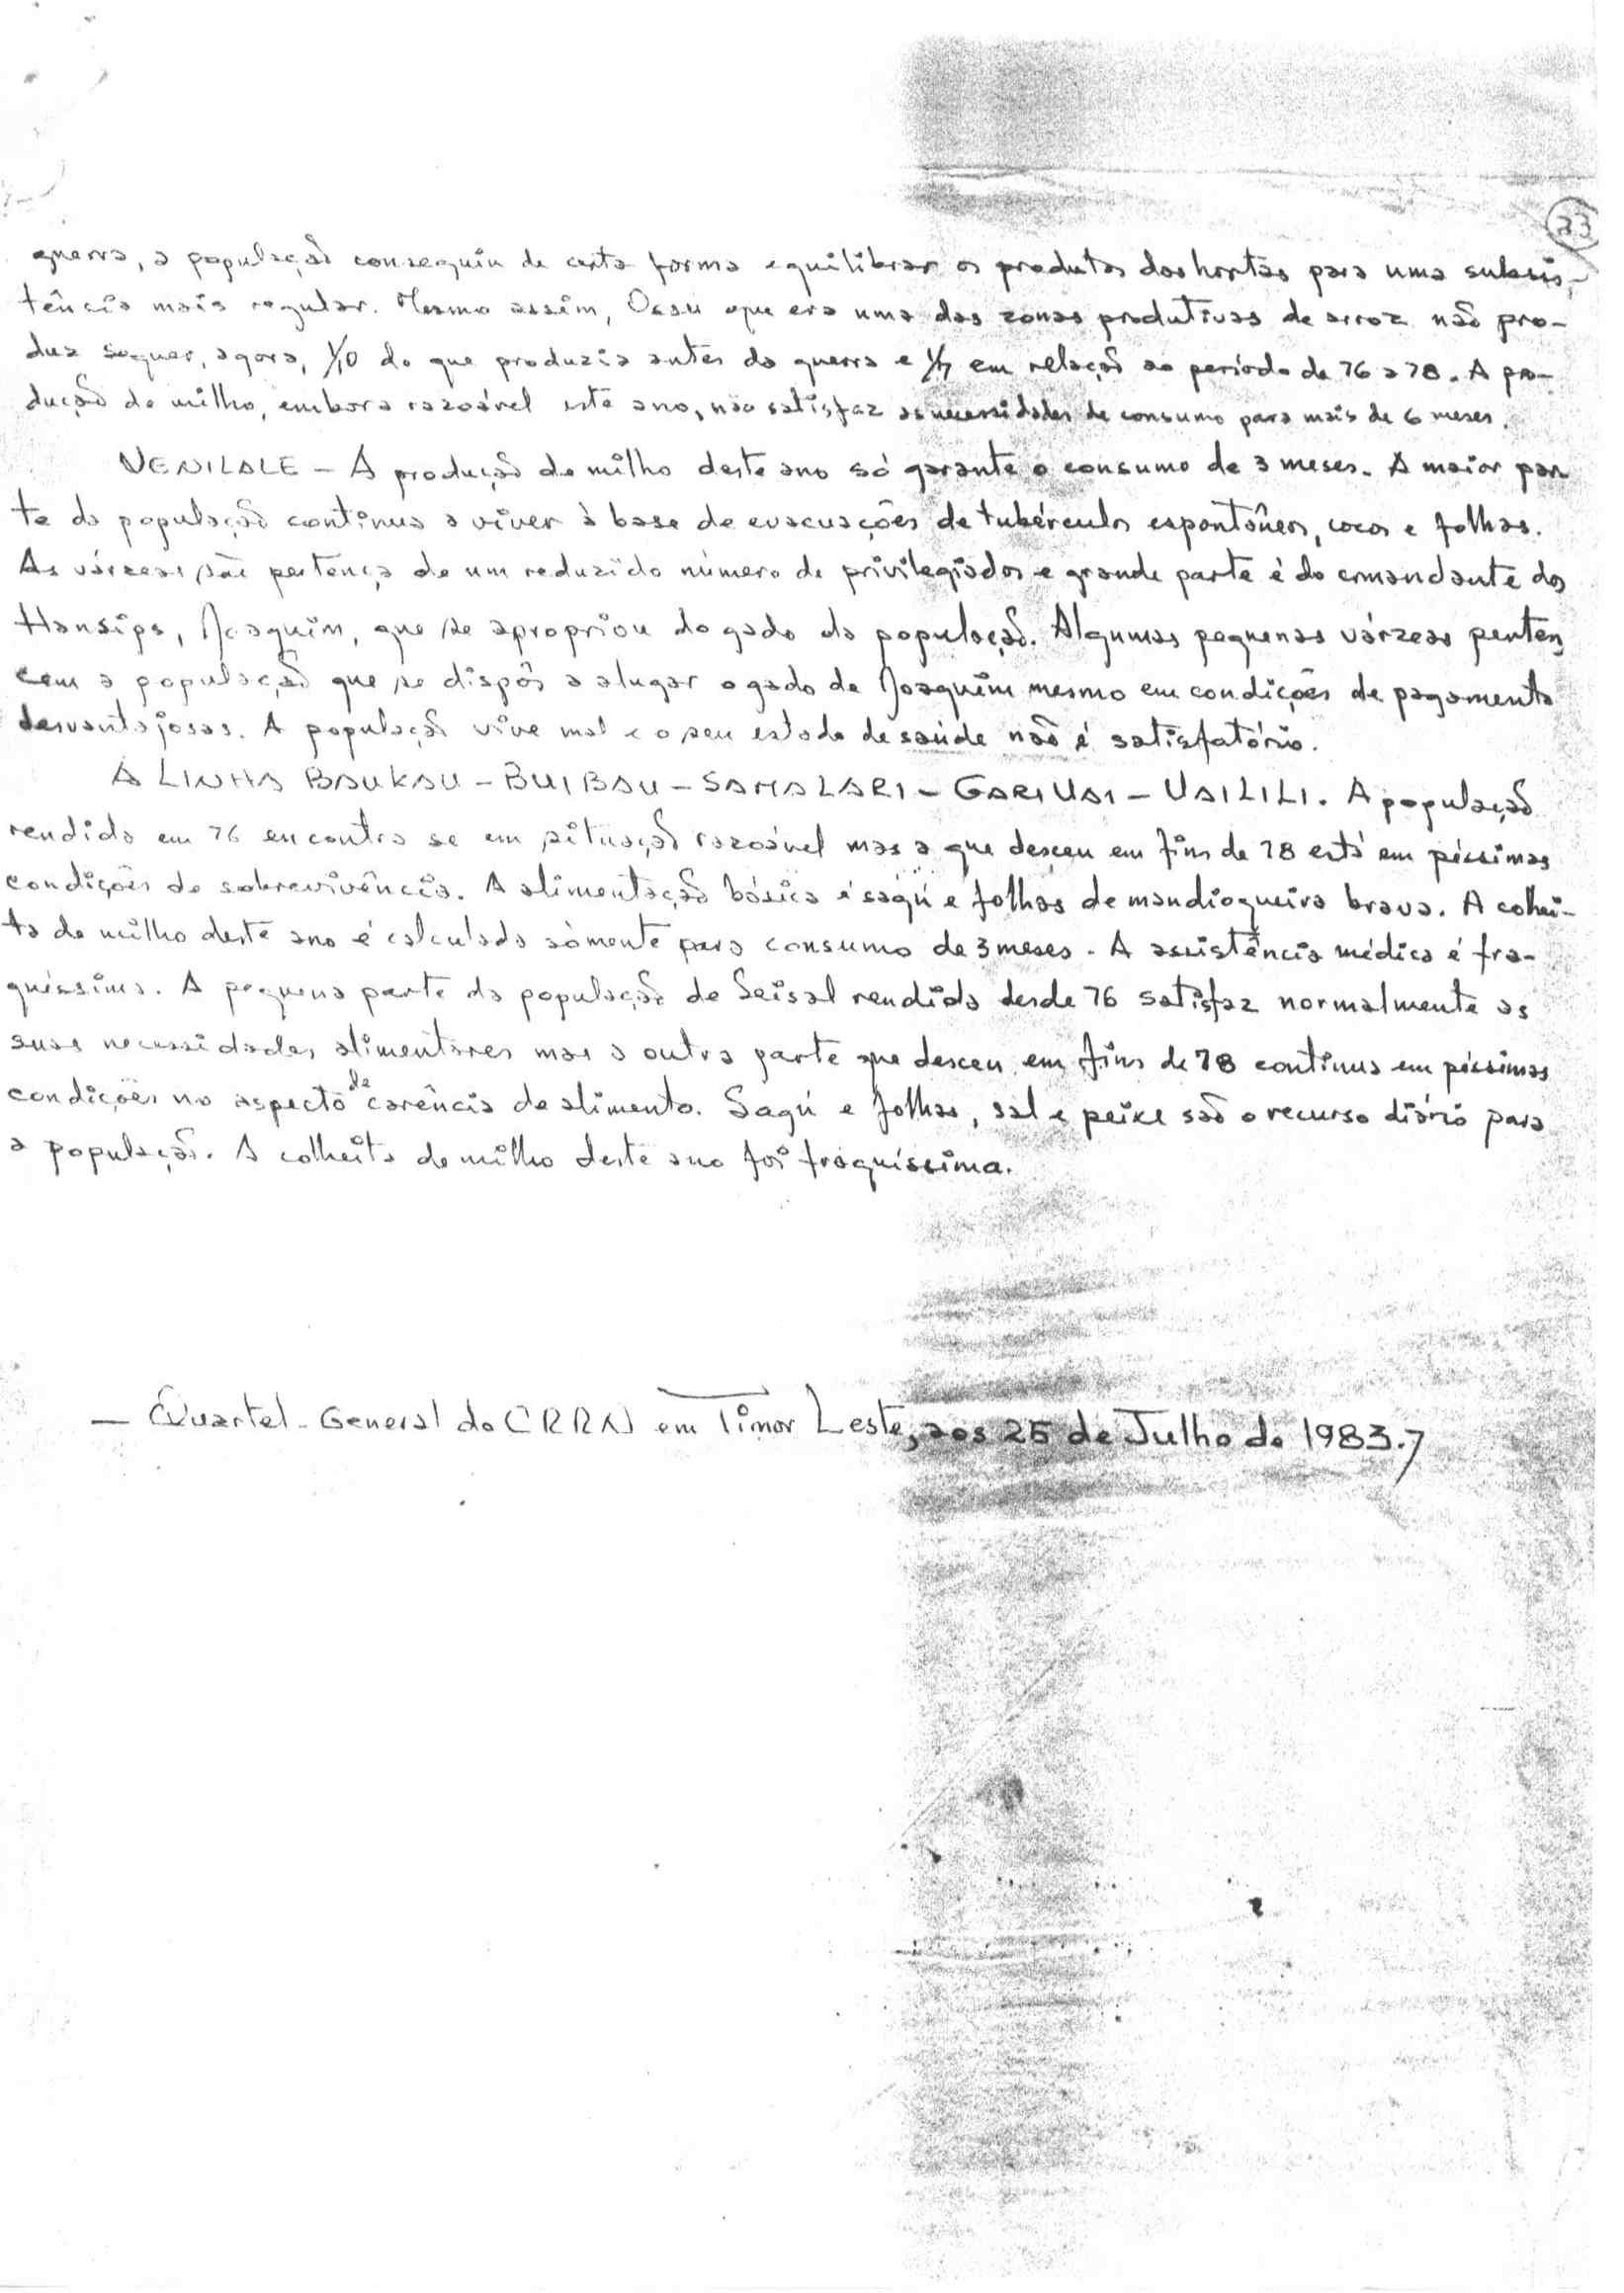 23
guerra, a população conseguiu de certa forma equilibrar os produtos das hortas para uma subsis-
tência mais regular. Mesmo assim, Ossu que era uma das zonas produtivas de arroz não pro-
duz sequer, agora, 1/10 do que produzia antes da guerra e em relação ao período de 76 a 78. A pro-
dução de milho, embora razoável este ano, não satisfaz as necessidades de consumo para mais de 6 meses.
VENILALE – A produção de milho deste ano só garante o consumo de 3 meses. A maior par
te da população continua a viver à base de evacuações de tubérculos espontâneos, cocos e folhas.
As várzeas são pertença de um reduzido número de privilegiados e grande parte é do comandante dos
Hansips, Joaquim, que se apropriou do gado da população. Algumas pequenas várzeas perten
cem a população que se dispôs a alugar o gado de Joaquim mesmo em condições de pagamento
desvantajosas. A população vive mal e o seu estado de saúde não é satisfatório.
A LINHA BAUKAU – BUIBAU – SAMALARI – GARIUAI – UAILILI. A população
rendida em 76 encontra se em situação razoável mas a que desceu em fins de 78 está em péssimas
condições de sobrevivência. A alimentação básica é sagú e folhas de mandioqueira brava. A colhei-
ta de milho deste ano é calculada sòmente para consumo de 3 meses. A assistência médica é fra-
quíssima. A pequena parte da população de Seisal rendida desde 76 satisfaz normalmente as
suas necessidades alimentares mas a outra parte que desceu em fins de 78 continua em péssimas
condições no aspecto de carência de alimento. Sagú e folhas, sal e peixe são o recurso diário para
a população. A colheita de milho deste ano foi fraquíssima.
— Quartel-General do CRRN em Timor Leste, aos 25 de Julho de 1983.